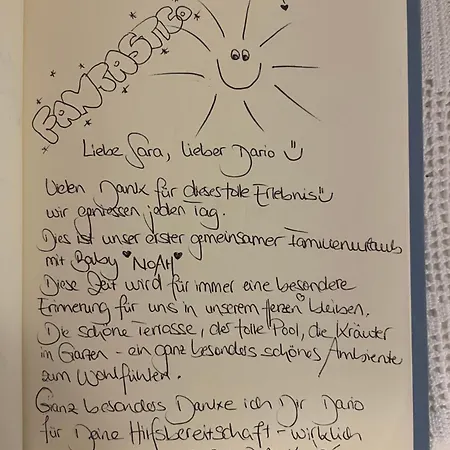 FANTASTICO
Liebe Sara, lieber Dario
Vielen Dank für dieses tolle Erlebnis
wir geniessen jeden Tag.
Dies ist unser erster gemeinsamer Familienurlaub
mit Baby "NOAH"
Diese Zeit wird für immer eine besondere
Erinnerung für uns in unserem Herzen bleiben.
Die schöne Terrasse, der tolle Pool, die Kräuter
im Garten - ein ganz besonders schönes Ambiente
zum Wohlfühlen.
Ganz besonders Danke ich Dir Dario
für Deine Hilfsbereitschaft - wirklich